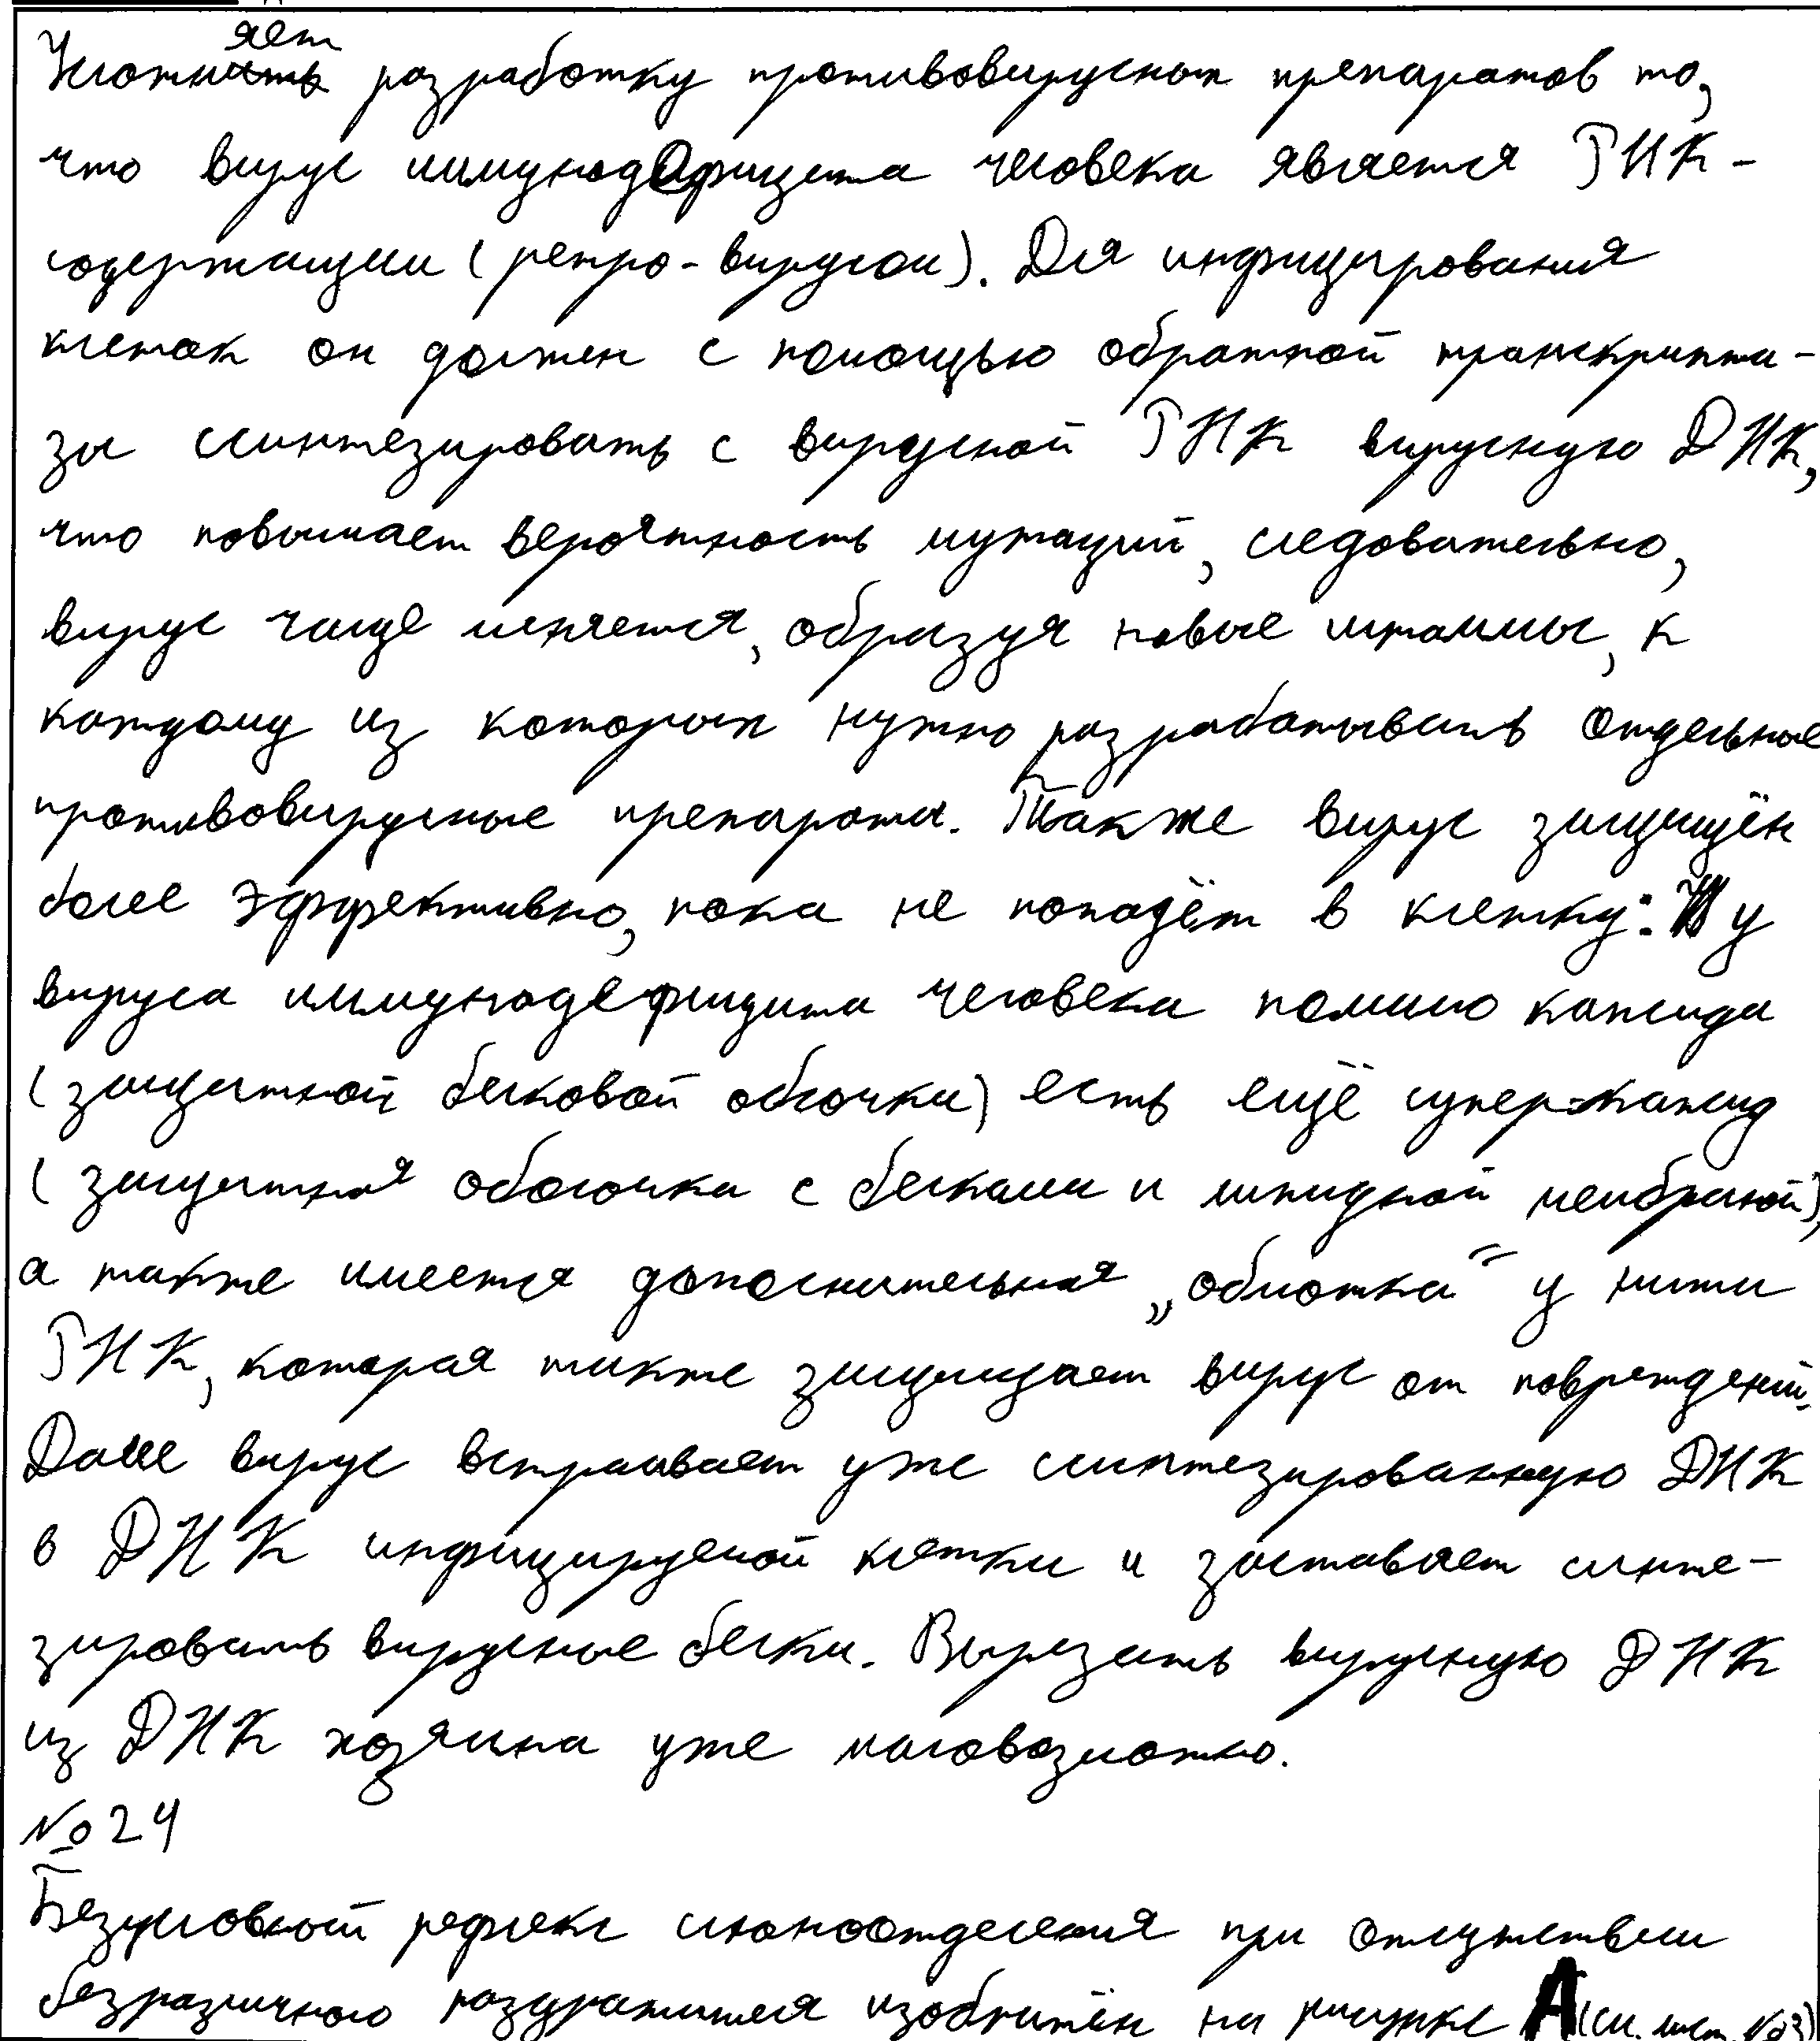 Усложняет разработку противовирусных препаратов то,
что вирус иммунодефицита человека является РНК-
содержащим (ретро-вирусом). Для инфицирования
клеток он должен с помощью обратной транскрипта-
зы синтезировать с вирусной РНК вирусную ДНК,
что повышает вероятность мутаций, следовательно,
вирус чаще меняется, образуя новые штаммы, к
каждому из которых нужно разрабатывать отдельные
противовирусные препараты. Также вирус защищён
более эффективно, пока не попадёт в клетку: у
вируса иммунодефицита человека помимо капсида
(защитной белковой облочки) есть ещё суперкапсид
(защитная оболочка с белками и липидной мембраной),
а также имеется дополнительная „обмотка" у нити
РНК, которая также защищает вирус от повреждений.
Далее вирус встраивает уже синтезированную ДНК
в ДНК инфицируемой клетки и заставляет синте-
зировать вирусные белки. Вырезать вирусную ДНК
из ДНК хозяина уже маловозможно.
№24
Безусловный рефлекс слюноотделения при отсутствии
безразличного раздражителя изображён на рисунке А (см. лист №2)